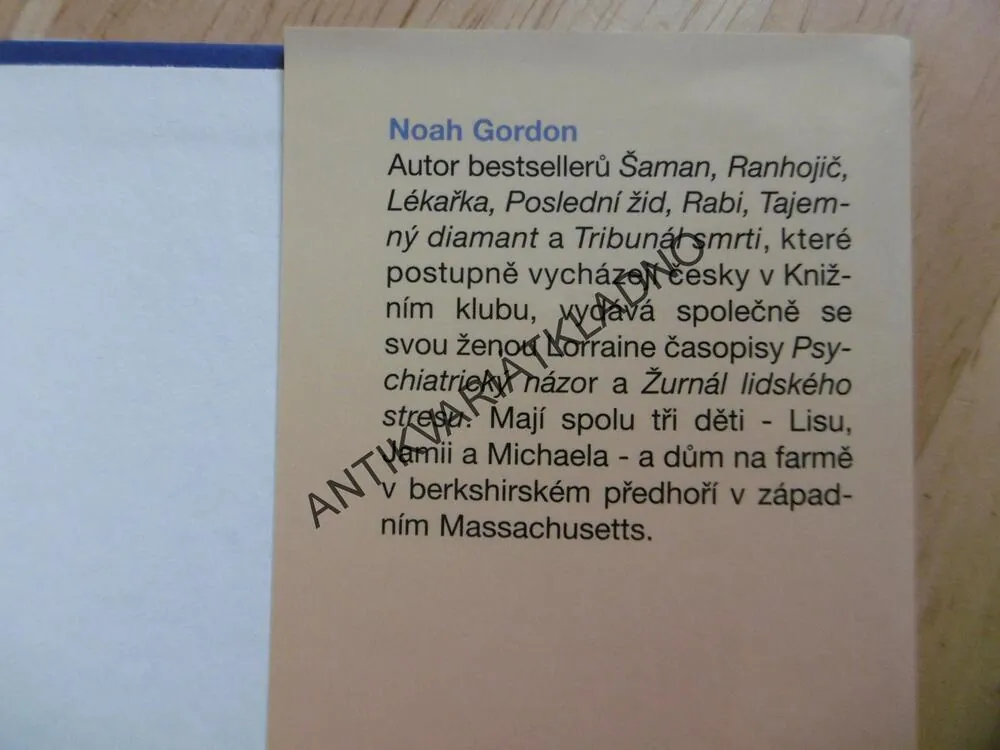 Noah Gordon
Autor bestsellerů Šaman, Ranhojič,
Lékařka, Poslední žid, Rabi, Tajem-
ný diamant a Tribunál smrti, které
postupně vycházejí česky v Kniž-
ním klubu, vydává společně se
svou ženou Lorraine časopisy Psy-
chiatrický názor a Žurnál lidského
stresu. Mají spolu tři děti - Lisu,
Jamii a Michaela - a dům na farmě
v berkshirském předhoří v západ-
ním Massachusetts.
ANTIKVARIATKLADNO